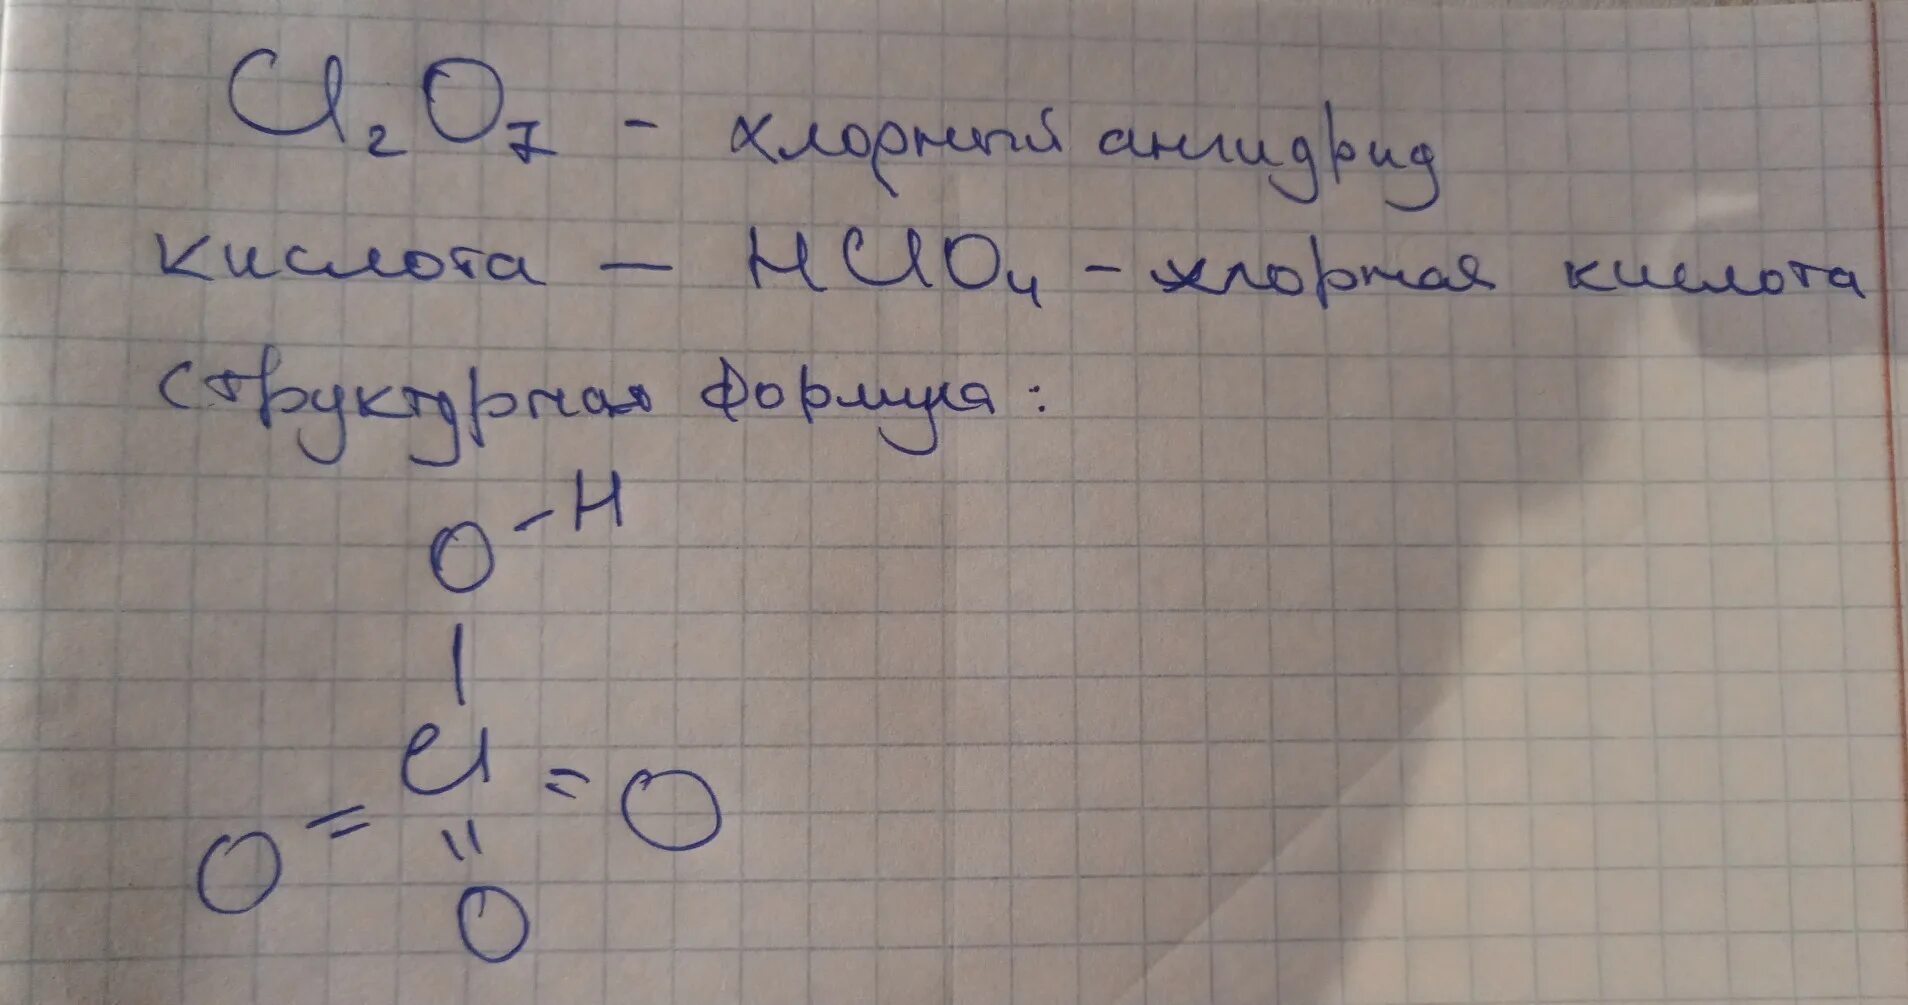 Cl₂O₇ - хлорный ангидрид
кислота — HClO₄ - хлорная кислота
структурная формула:
O - H
|
Cl = O
O =
=
O